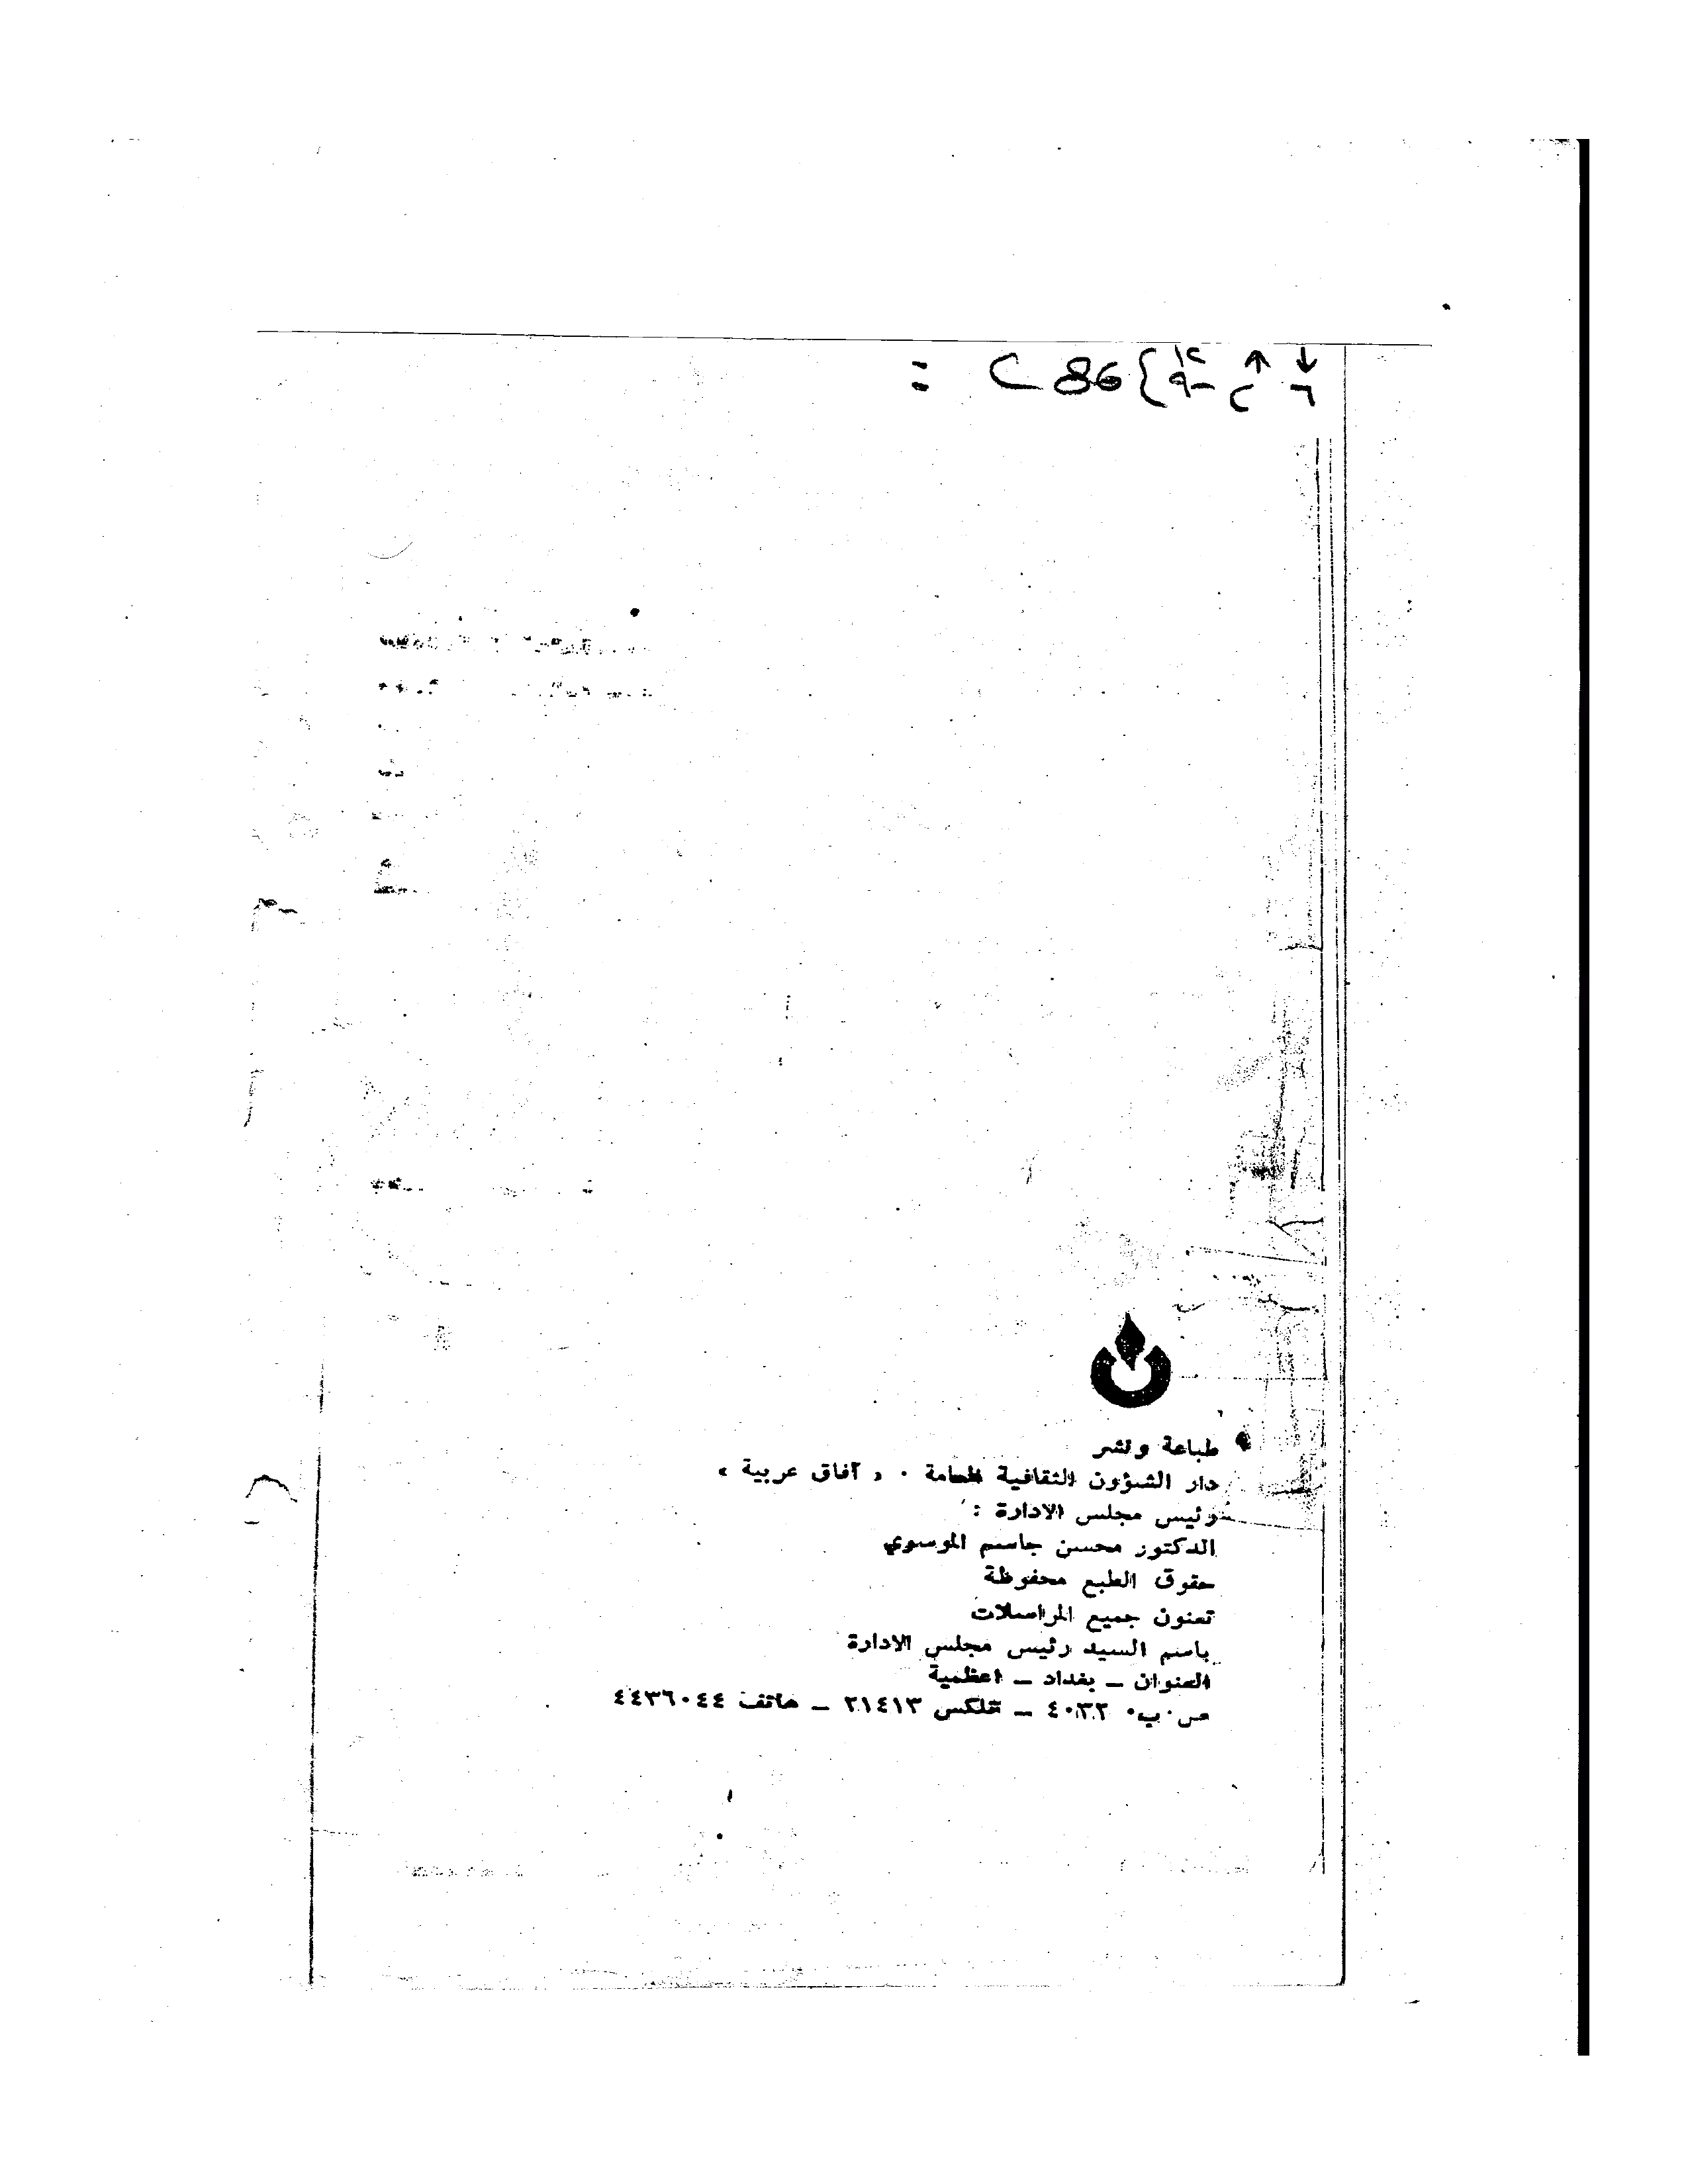 طباعة ونشر
دار الشؤون الثقافية العامة ٠ « آفاق عربية »
رئيس مجلس الادارة :
الدكتور محسن جاسم الموسوي
حقوق الطبع محفوظة
تعنون جميع المراسلات
باسم السيد رئيس مجلس الادارة
العنوان _ بغداد _ اعظمية
ص٠ب٠ ٤٠٣٢ _ تلكس ٢١٤١٣ _ هاتف ٤٤٣٦٠٤٤